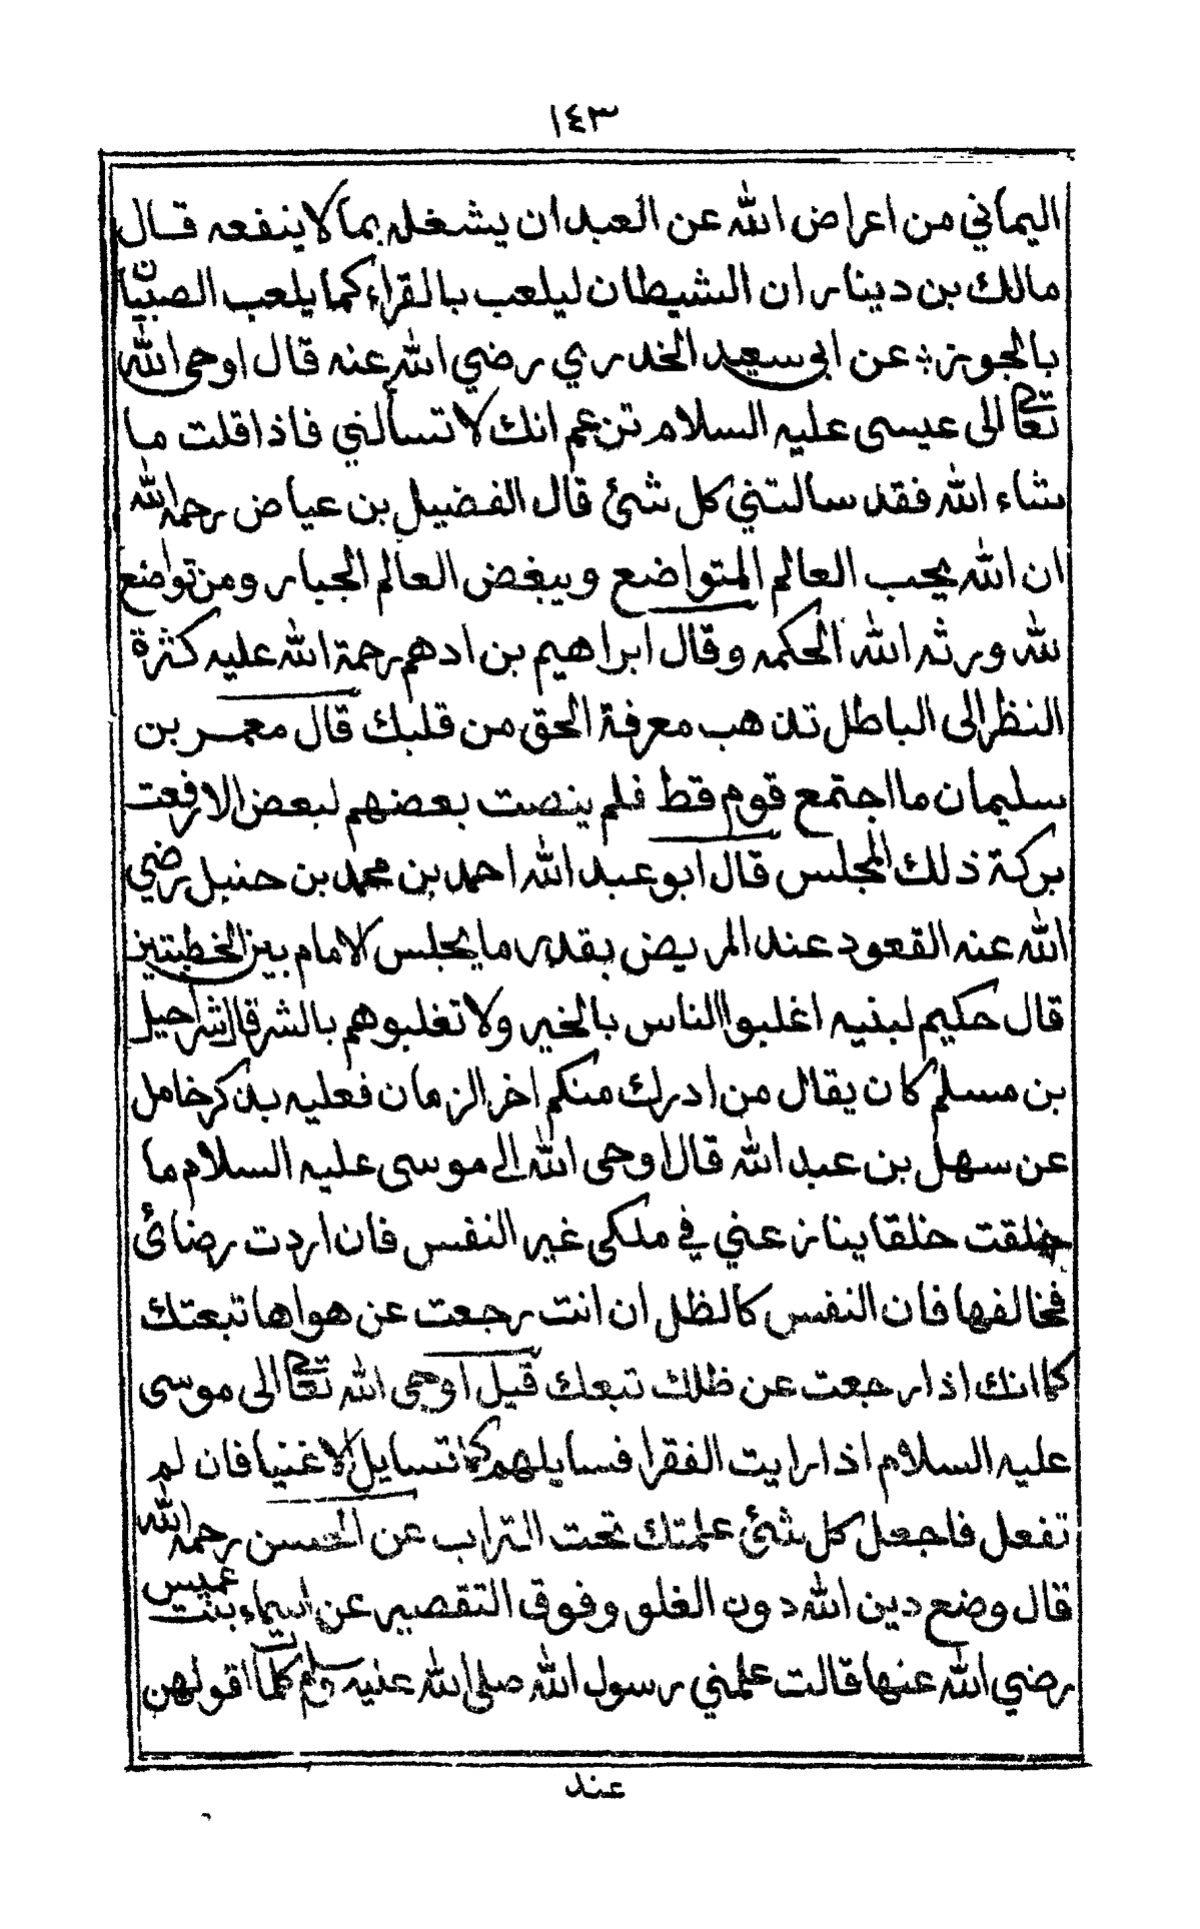 ١٤٣
اليماني من اعراض الله عن العبد ان يشغله بما لا ينفعه قال
مالك بن دينار ان الشيطان ليلعب بالقراء كما يلعب الصبيان
بالجوز عن ابي سعيد الخدري رضي الله عنه قال اوحى الله
تعالى الى عيسى عليه السلام تزعم انك لا تسألني فاذا قلت ما
شاء الله فقد سالتني كل شئ قال الفضيل بن عياض رحمه الله
ان الله يحب العالم المتواضع ويبغض العالم الجبار ومن تواضع
لله ورثه الله الحكمه وقال ابراهيم بن ادهم رحمة الله عليه كثرة
النظر الى الباطل تذهب معرفة الحق من قلبك قال معمر بن
سليمان ما اجتمع قوم قط فلم ينصت بعضهم لبعض الا رفعت
بركة ذلك المجلس قال ابو عبد الله احمد بن محمد بن حنبل رضي
الله عنه القعود عند المريض بقدر ما يجلس الامام بين الخطبتين
قال حكيم لبنيه اغلبوا الناس بالخير ولا تغلبوهم بالشر قال شراحيل
بن مسلم كان يقال من ادرك منكم اخر الزمان فعليه بذكر خامل
عن سهل بن عبد الله قال اوحى الله الى موسى عليه السلام ما
خلقت خلقا ينازعني في ملكى غير النفس فان اردت رضائ
فخالفها فان النفس كالظل ان انت رجعت عن هواها تبعتك
كما انك اذا رجعت عن ظلك تبعك قيل اوحى الله تعالى الى موسى
عليه السلام اذا رايت الفقرا فسايلهم كما تسايل الاغنيا فان لم
تفعل فاجعل كل شئ علمتك تحت التراب عن الحسن رحمه الله
قال وضع دين الله دون الغلو وفوق التقصير عن اسماء بنت عميس
رضي الله عنها قالت علمني رسول الله صلى الله عليه وسلم كلمات اقولهن
عند